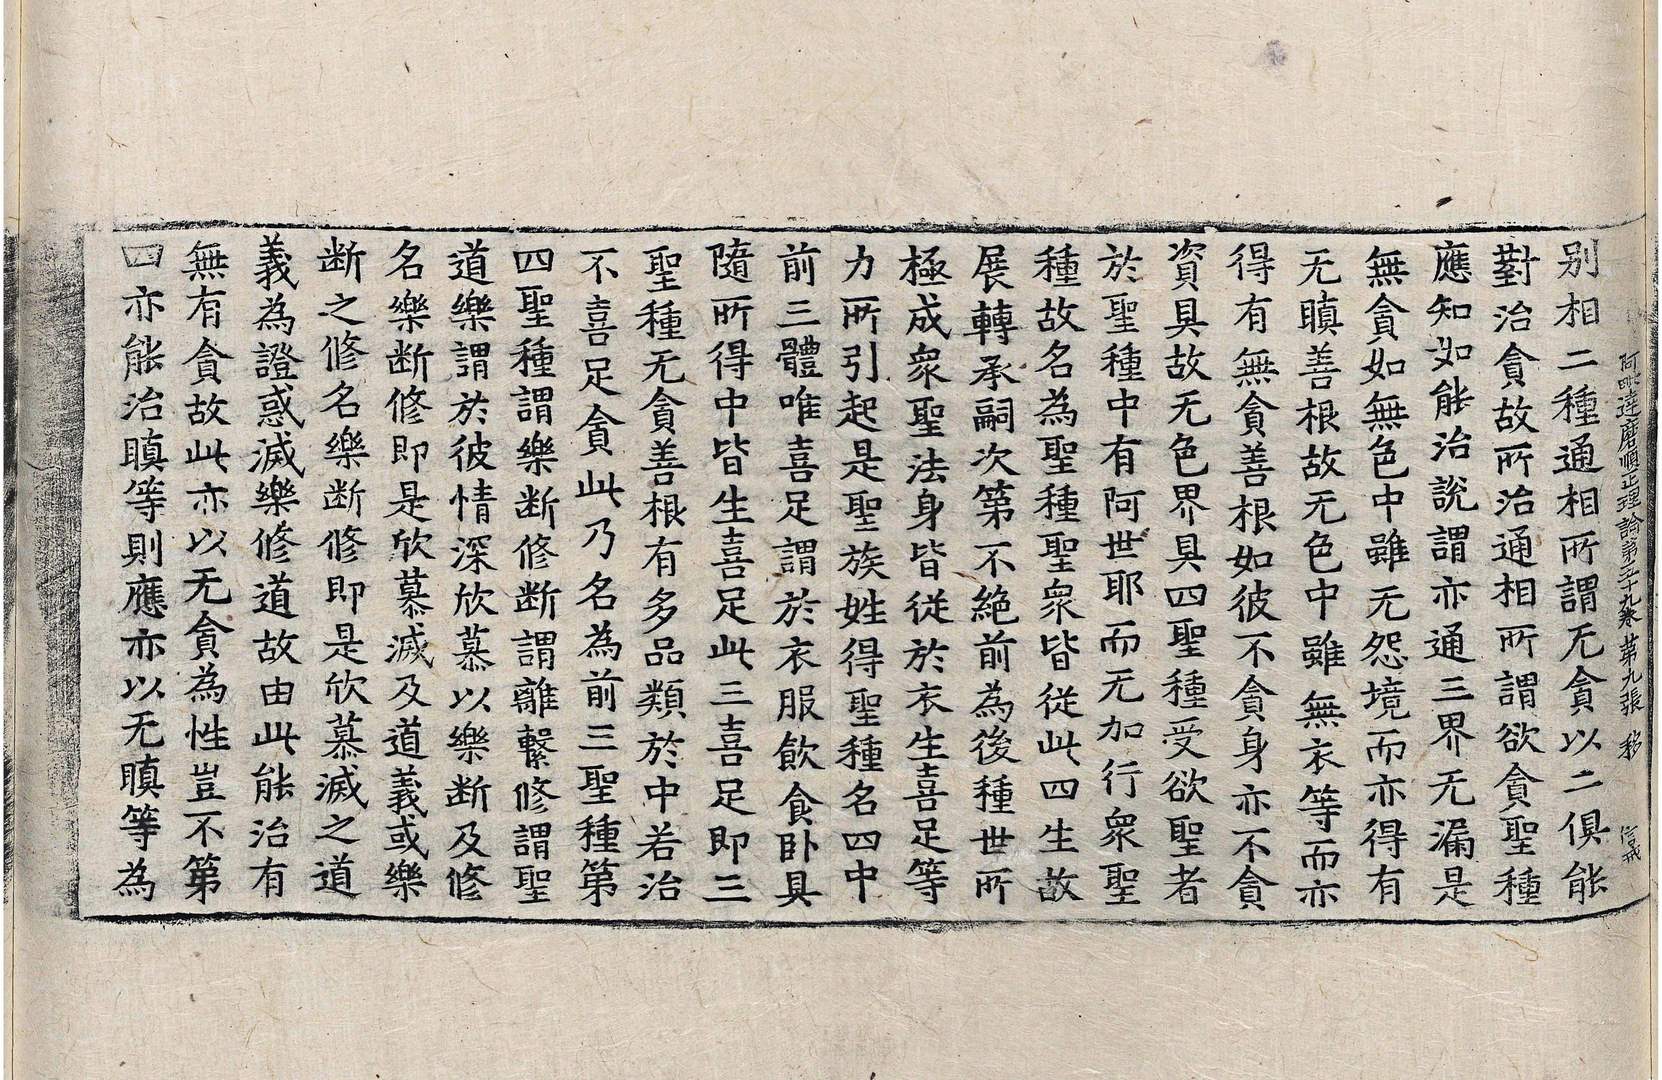 阿毗達磨順正理論第五十九卷 第九張 移 信戒
别相二種通相所謂无貪以二俱能
對治貪故所治通相所謂欲貪聖種
應知如能治說謂亦通三界无漏是
無貪如無色中雖无怨境而亦得有
无瞋善根故无色中雖無衣等而亦
得有無貪善根如彼不貪身亦不貪
資具故无色界具四聖種受欲聖者
於聖種中有阿世耶而无加行衆聖
種故名為聖種聖衆皆從此四生故
展轉承嗣次第不絶前為後種世所
極成衆聖法身皆從於衣生喜足等
力所引起是聖族姓得聖種名四中
前三體唯喜足謂於衣服飲食卧具
隨所得中皆生喜足此三喜足即三
聖種无貪善根有多品類於中若治
不喜足貪此乃名為前三聖種第
四聖種謂樂断修断謂離繫修謂聖
道樂謂於彼情深欣慕以樂断及修
名樂断修即是欣慕滅及道義或樂
断之修名樂断修即是欣慕滅之道
義為證惑滅樂修道故由此能治有
無有貪故此亦以无貪為性豈不第
四亦能治瞋等則應亦以无瞋等為